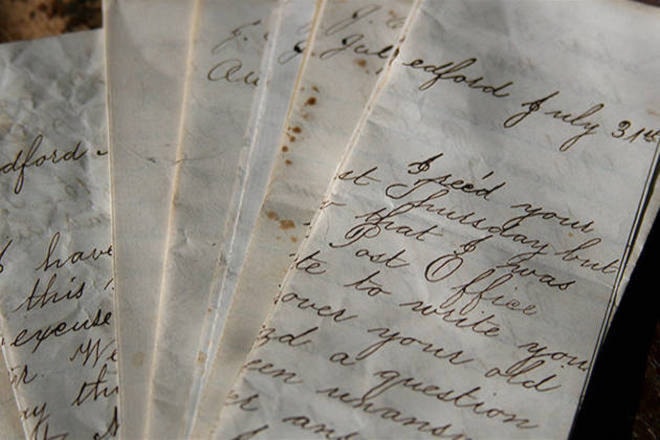 dford -
I have
this
excuse
r. We
y th
J.
Au
J.
Jul
edford July 31st
I rec'd your
st Thursday but
that I was
Post Office
te to write you
over your old
d a question
een unansw
er an